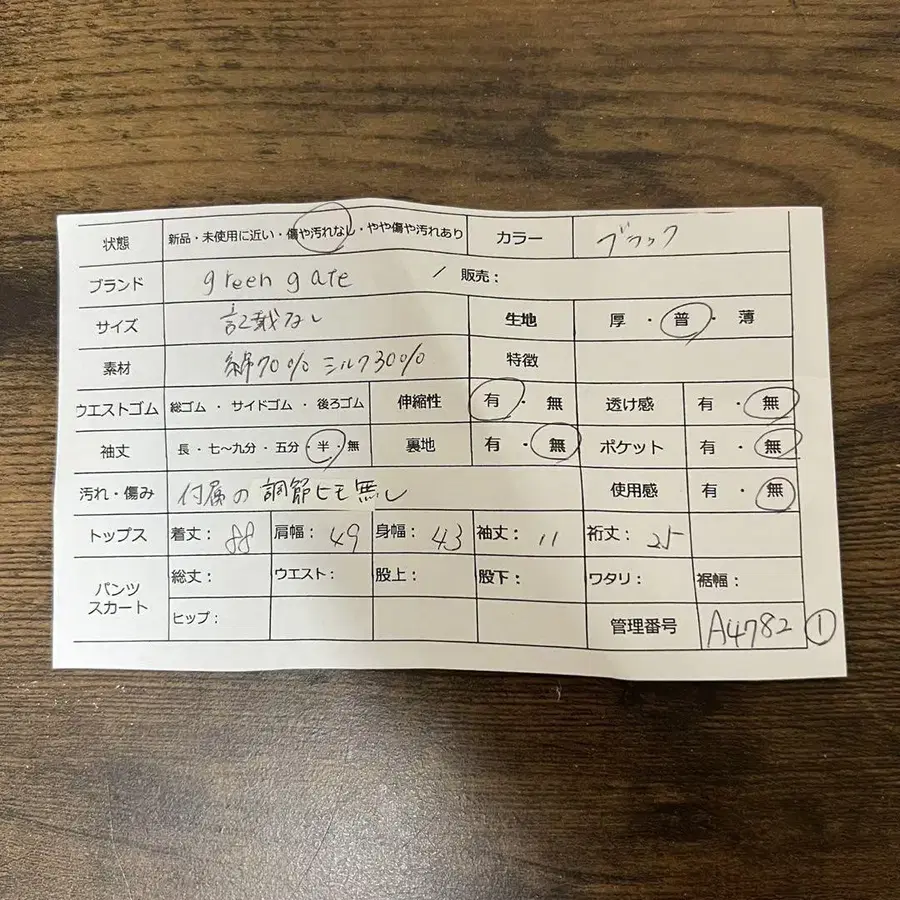 状態 新品・未使用に近い・傷や汚れなし・やや傷や汚れあり カラー ブラック
ブランド green gate / 販売：
サイズ 記載なし 生地 厚・普・薄
素材 綿70% シルク30% 特徴
ウエストゴム 総ゴム・サイドゴム・後ろゴム 伸縮性 有・無 透け感 有・無
袖丈 長・七〜九分・五分・半・無 裏地 有・無 ポケット 有・無
汚れ・傷み 付属の調節ヒモ無し 使用感 有・無
トップス 着丈：88 肩幅：49 身幅：43 袖丈：11 裄丈：25
パンツ 総丈： ウエスト： 股上： 股下： ワタリ： 裾幅：
スカート ヒップ： 管理番号 A4782 ①